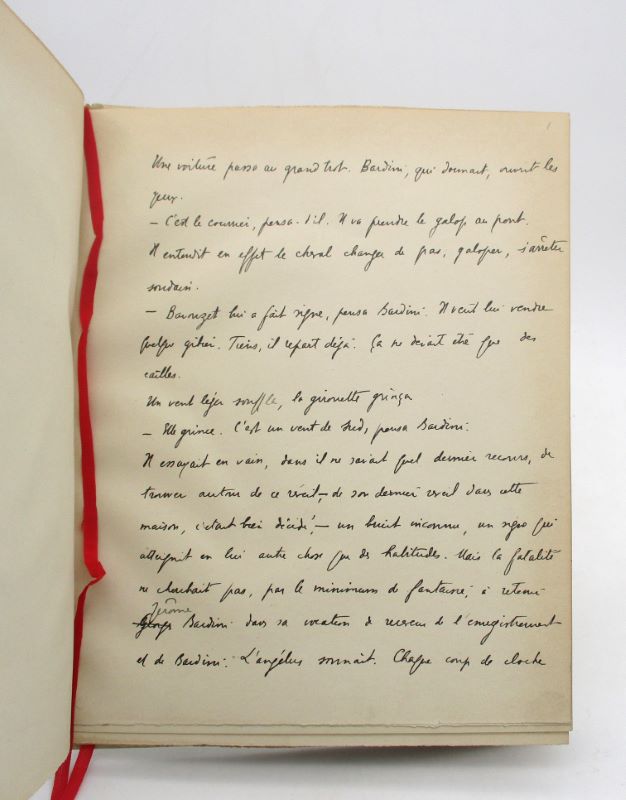 1
Une voiture passa au grand trot. Bardini, qui dormait, ouvrit les
yeux.
– C'est le courrier, pensa-t-il. Il va prendre le galop au pont.
Il entendit en effet le cheval changer de pas, galoper, s'arrêter
soudain.
– Barouzet lui a fait signe, pensa Bardini. Il veut lui vendre
quelque gibier. Tiens, il repart déjà. Ça ne devait être que des
cailles.
Un vent léger souffle, la girouette grinça
– Elle grince. C'est un vent de Sud, pensa Bardini.
Il essayait en vain, dans il ne savait quel dernier recours, de
trouver autour de ce réveil, – de son dernier réveil dans cette
maison, c'était bien décidé, – un bruit inconnu, un signe qui
atteignit en lui autre chose que des habitudes. Mais la fatalité
ne cherchait pas, par le minimum de fantaisie, à retenir
Jérôme
Georges Bardini dans sa vocation de receveur de l'enregistrement
et de Bardini. L'angélus sonnait. Chaque coup de cloche